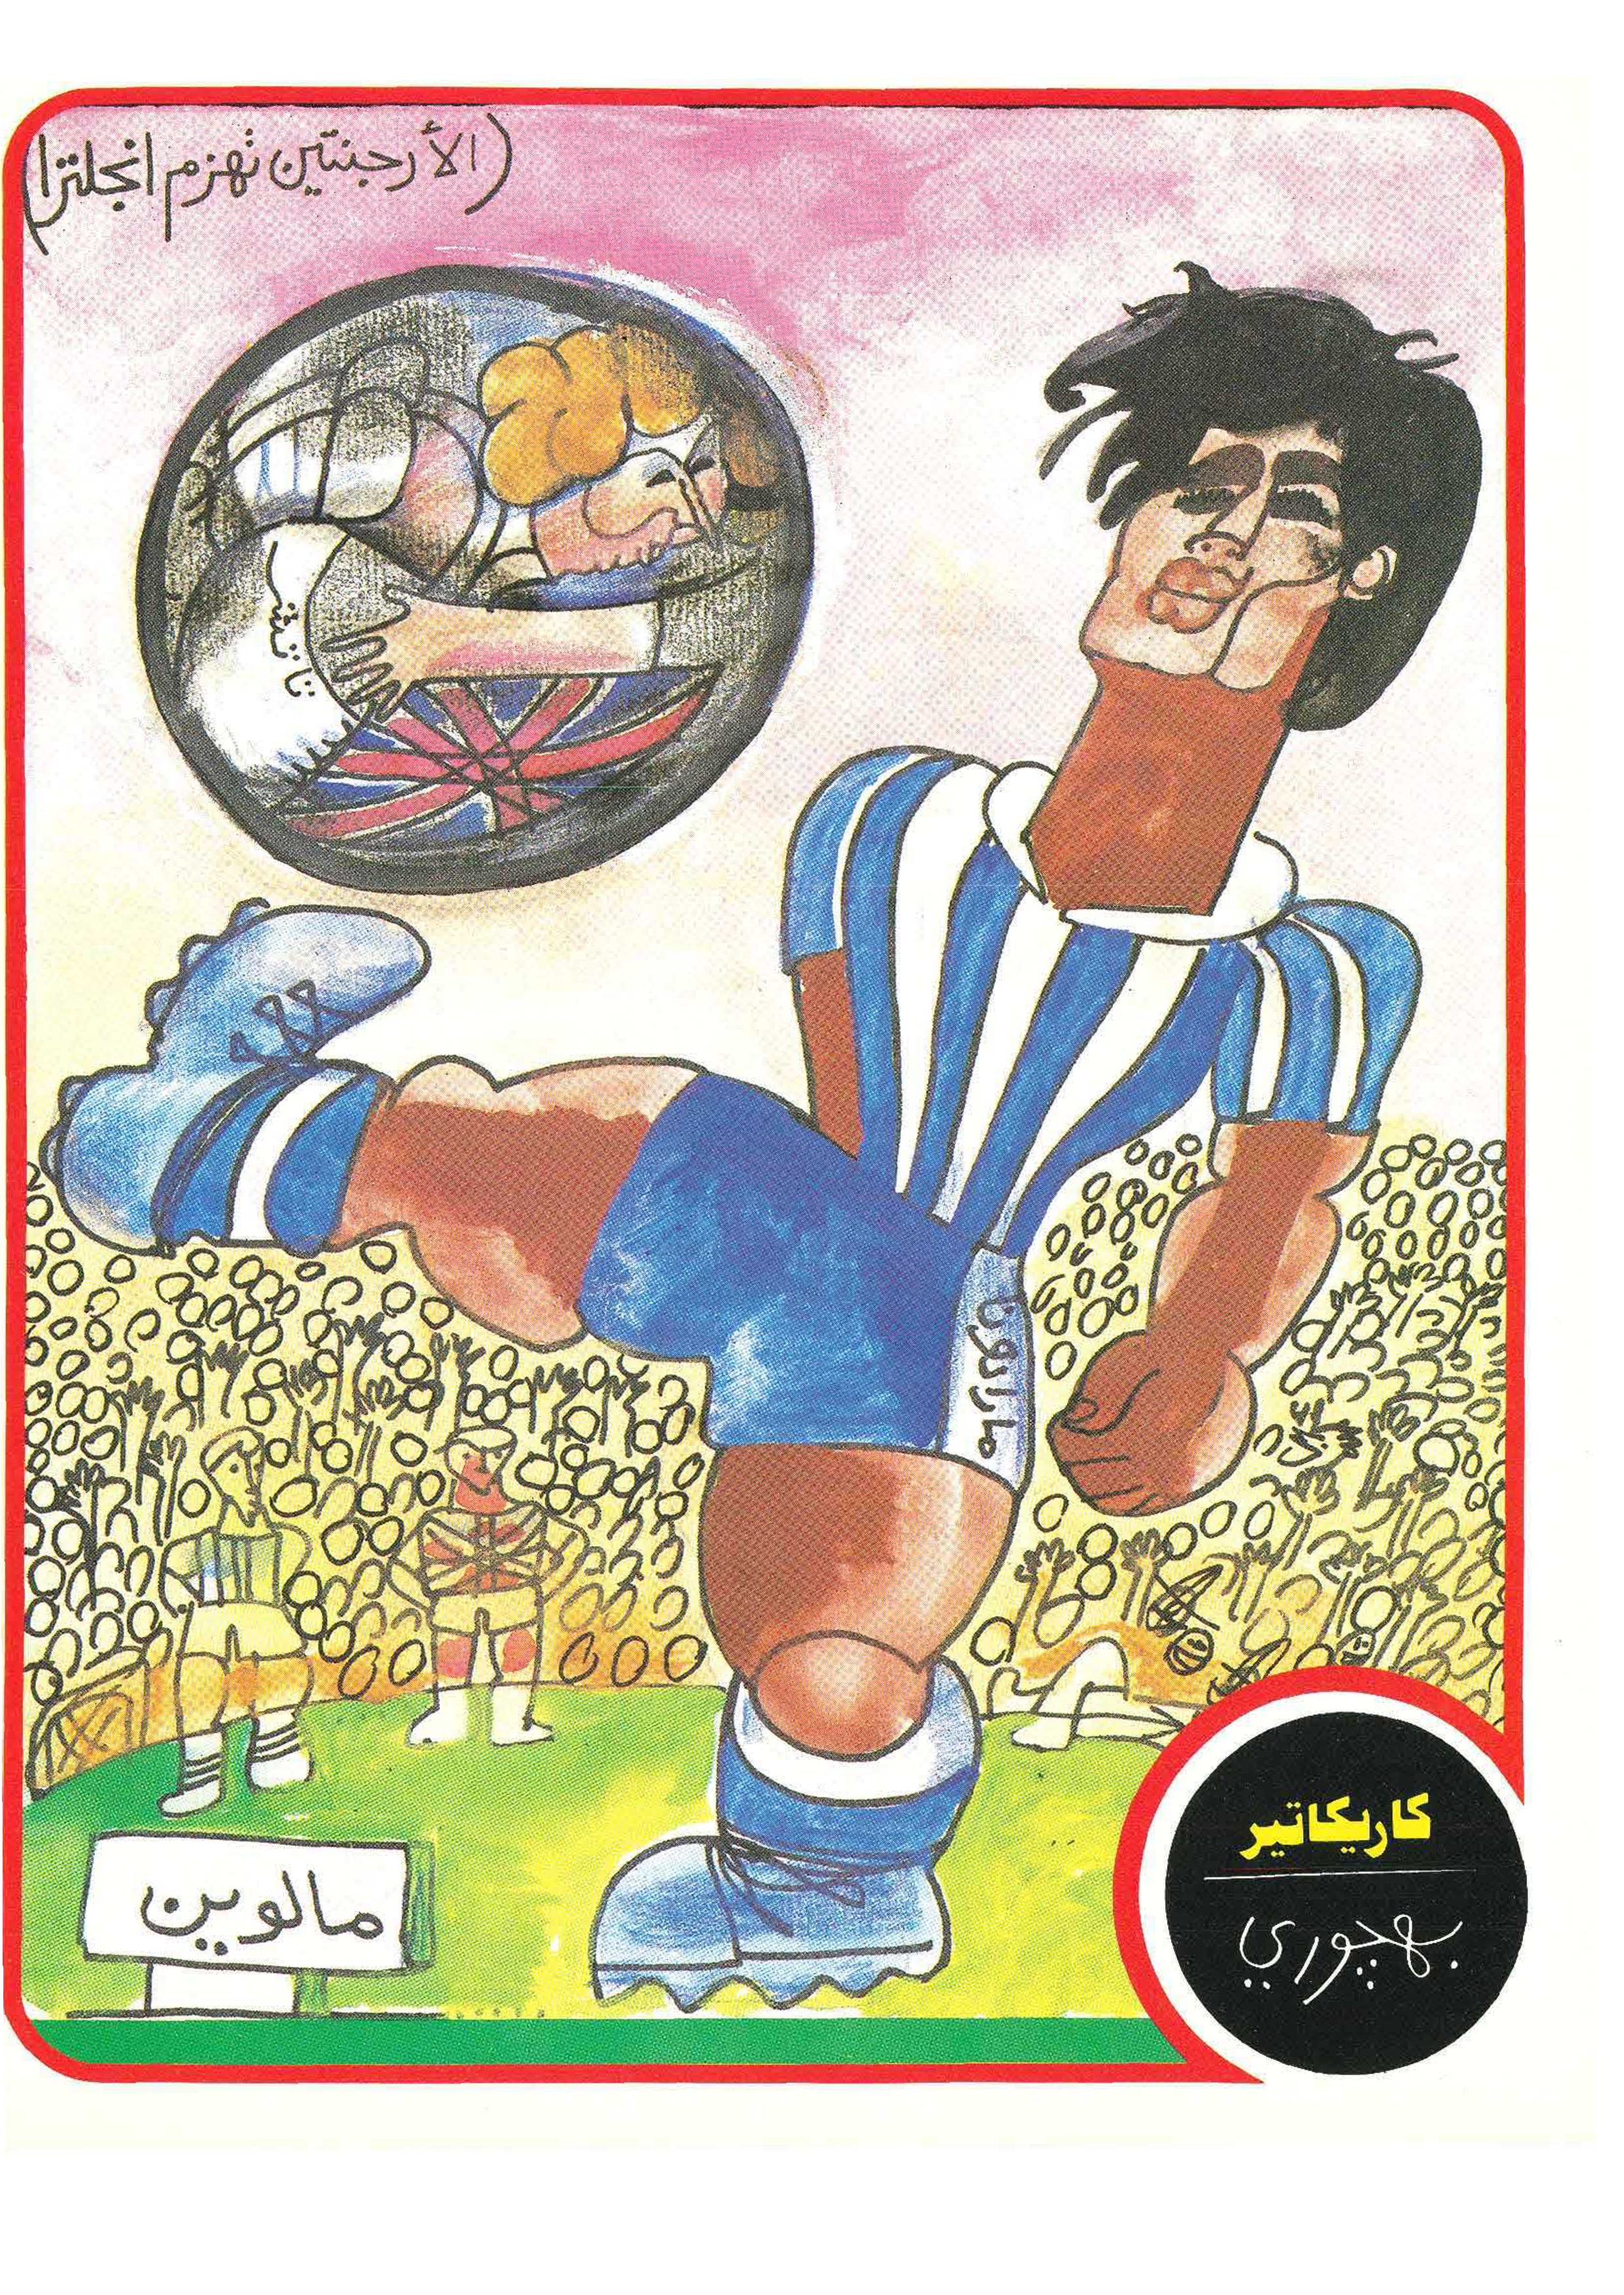 (الأرجنتين تهزم انجلترا)
تاتشر
مارادونا
مالوين
كاريكاتير
بهجوري